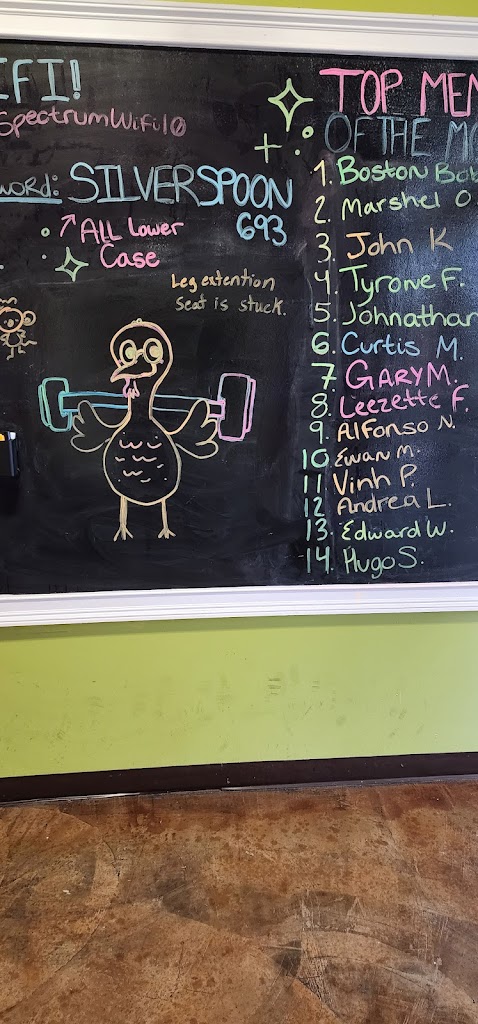 IFI!
SpectrumWifi10
word: SILVERSPOON
693
ALL Lower
Case
Leg extention
Seat is stuck.
TOP MEM
OF THE MO
1. Boston Bob
2. Marshel O
3. John K
4. Tyrone F.
5. Johnathan
6. Curtis M.
7. GARY M.
8. Leezette F.
9. Alfonso N.
10 Ewan M.
11 Vinh P.
12 Andrea L.
13. Edward W.
14. Hugo S.